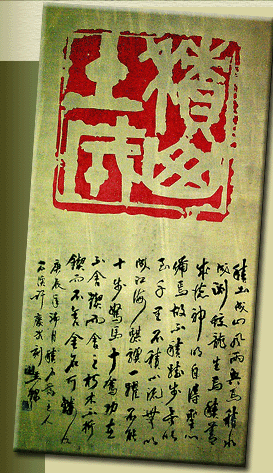 積土
成山
積土成山風雨興焉積水
成淵蛟龍生焉積善
成德神明自得聖心
備焉故不積蹞步無以
至千里不積小流無以
成江海騏驥一躍不能
十步駑馬十駕功在
不舍鍥而舍之朽木不折
鍥而不舍金石可鏤
庚辰年